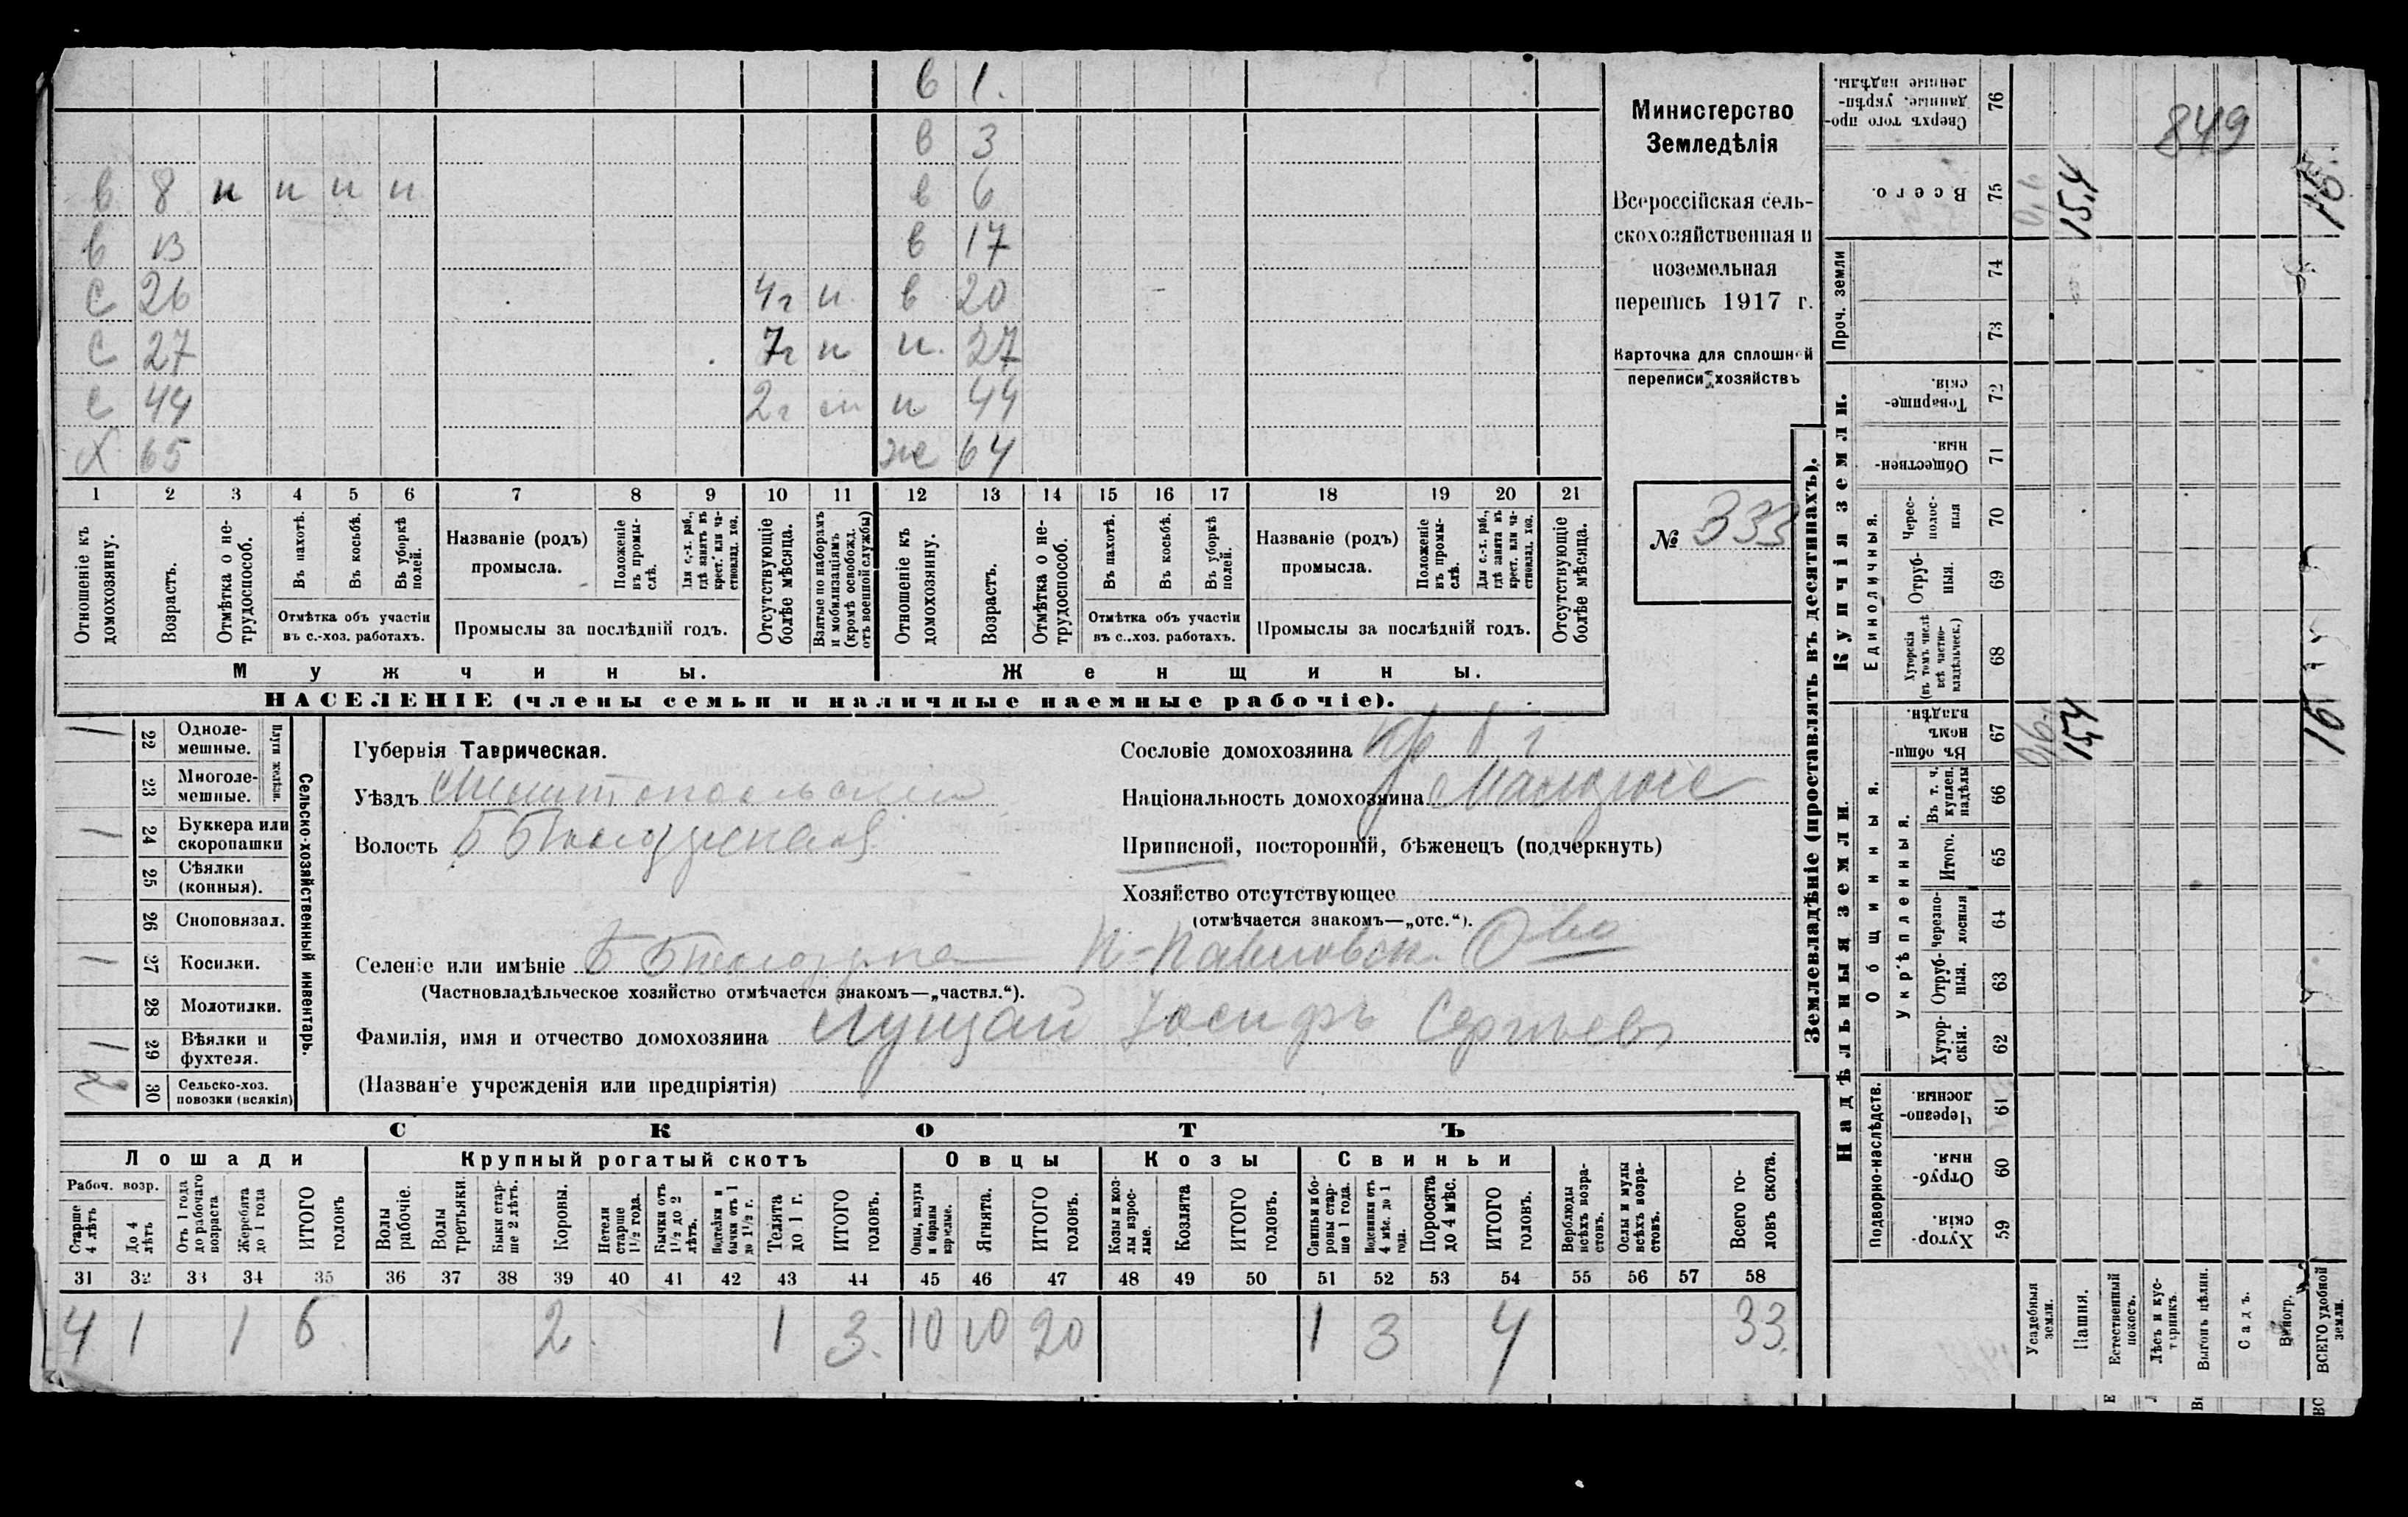 в 1.
в 3
в 8 н н н н в 6
в 13 в 17
с 26 4г н в 20
с 27 7г н н. 27
с 44 2г н 44
Х 65 же 64
1 2 3 4 5 6 7 8 9 10 11 12 13 14 15 16 17 18 19 20 21
Отношеніе къ домохозяину.
Возрастъ.
Отмѣтка о не-трудоспособ.
Въ пахотѣ.
Въ косьбѣ.
Въ уборкѣ полей.
Отмѣтка объ участіи
въ с.-хоз. работахъ.
Названіе (родъ)
промысла.
Положеніе въ промы-слѣ.
Для с.-х. раб., гдѣ занятъ въ крест. или ча-стновлад. хоз.
Промыслы за послѣдній годъ.
Отсутствующіе болѣе мѣсяца.
Взятые по наборамъ и мобилизаціямъ (кромѣ освобожд. отъ военной службы)
Отношеніе къ домохозяину.
Возрастъ.
Отмѣтка о не-трудоспособ.
Въ пахотѣ.
Въ косьбѣ.
Въ уборкѣ полей.
Отмѣтка объ участіи
въ с..хоз. работахъ.
Названіе (родъ)
промысла.
Положеніе въ промы-слѣ.
Для с.-х. раб., гдѣ занята въ крест. или ча-стновлад. хоз.
Промыслы за послѣдній годъ.
Отсутствующіе болѣе мѣсяца.
Мужчины.
Женщины.
НАСЕЛЕНІЕ (члены семьи и наличные наемные рабочіе).
Министерство
Земледѣлія
Всероссійская сель-
скохозяйственная и
поземельная
перепись 1917 г.
Карточка для сплошной
переписи хозяйствъ
№ 333
22 Одноле-мешные.
23 Многоле-мешные.
Плуги желѣзн.
24 Буккера или скоропашки
25 Сѣялки (конныя).
26 Сноповязал.
27 Косилки.
28 Молотилки.
29 Вѣялки и фухтеля.
30 Сельско-хоз. повозки (всякія)
Сельско-хозяйственный инвентарь.
Губернія Таврическая.
Уѣздъ Мелитопольский
Волость Б Белозерская
Селеніе или имѣніе Б Белозерка П-Павловск. Ова
(Частновладѣльческое хозяйство отмѣчается знакомъ—„частвл.“).
Фамилія, имя и отчество домохозяина Лущай Іосифъ Сергѣевъ
(Названіе учрежденія или предпріятія)
Сословіе домохозяина Кр
Національность домохозяина Малорос
Приписной, посторонній, бѣженецъ (подчеркнуть)
Хозяйство отсутствующее
(отмѣчается знакомъ—„отс.“).
СКОТЪ
Лошади Крупный рогатый скотъ Овцы Козы Свиньи
Рабоч. возр.
Старше 4 лѣтъ
До 4 лѣтъ
Отъ 1 года до рабочаго возраста
Жеребята до 1 года
ИТОГО головъ
Волы рабочіе.
Волы третьяки.
Быки стар-ше 2 лѣтъ.
Коровы.
Нетели старше 1½ года.
Бычки отъ 1½ до 2 лѣтъ.
Подтёлки и бычки отъ 1 до 1½ г.
Телята до 1 г.
ИТОГО головъ.
Овцы, валухи и бараны взрослые.
Ягнята.
ИТОГО головъ.
Козы и коз-лы взрос-лые.
Козлята
ИТОГО головъ.
Свиньи и бо-ровы стар-ше 1 года.
Подсвинки отъ 4 мѣс. до 1 года.
Поросята до 4 мѣс.
ИТОГО головъ.
Верблюды всѣхъ возра-стовъ.
Ослы и мулы всѣхъ возра-стовъ.
Всего го-ловъ скота.
31 32 33 34 35 36 37 38 39 40 41 42 43 44 45 46 47 48 49 50 51 52 53 54 55 56 57 58
4 1 1 6 2. 1 3. 10 10 20 1 3 4 33.
Землевладѣніе (проставлять въ десятинахъ).
Надѣльныя земли.
Купчія земли.
Проч. земли
Подворно-наслѣдств.
Общинныя.
Укрѣпленныя.
Единоличныя.
Сверхъ того про-данные, укрѣп-ленные надѣлы. 76
Всего. 75
74
73
Товарище-скія. 72
Обществен-ныя. 71
Черес-полос-ныя 70
Отруб-ныя. 69
Хуторскія (въ томъ числѣ всѣ частно-владѣльческ.) 68
Въ общин-номъ владѣн. 67
Въ т. ч. куплен. надѣлы 66
Итого. 65
Черезпо-лосныя 64
Отруб-ныя. 63
Хутор-скія. 62
Черезпо-лосныя. 61
Отруб-ныя. 60
Хутор-скія. 59
Усадебныя земли.
Пашня.
Естественный покосъ.
Лѣсъ и кус-тарникъ.
Выгонъ цѣлин.
Садъ.
Виногр.
ВСЕГО удобной земли.
0,6 15,4 16
0,6 15,4 16.
849